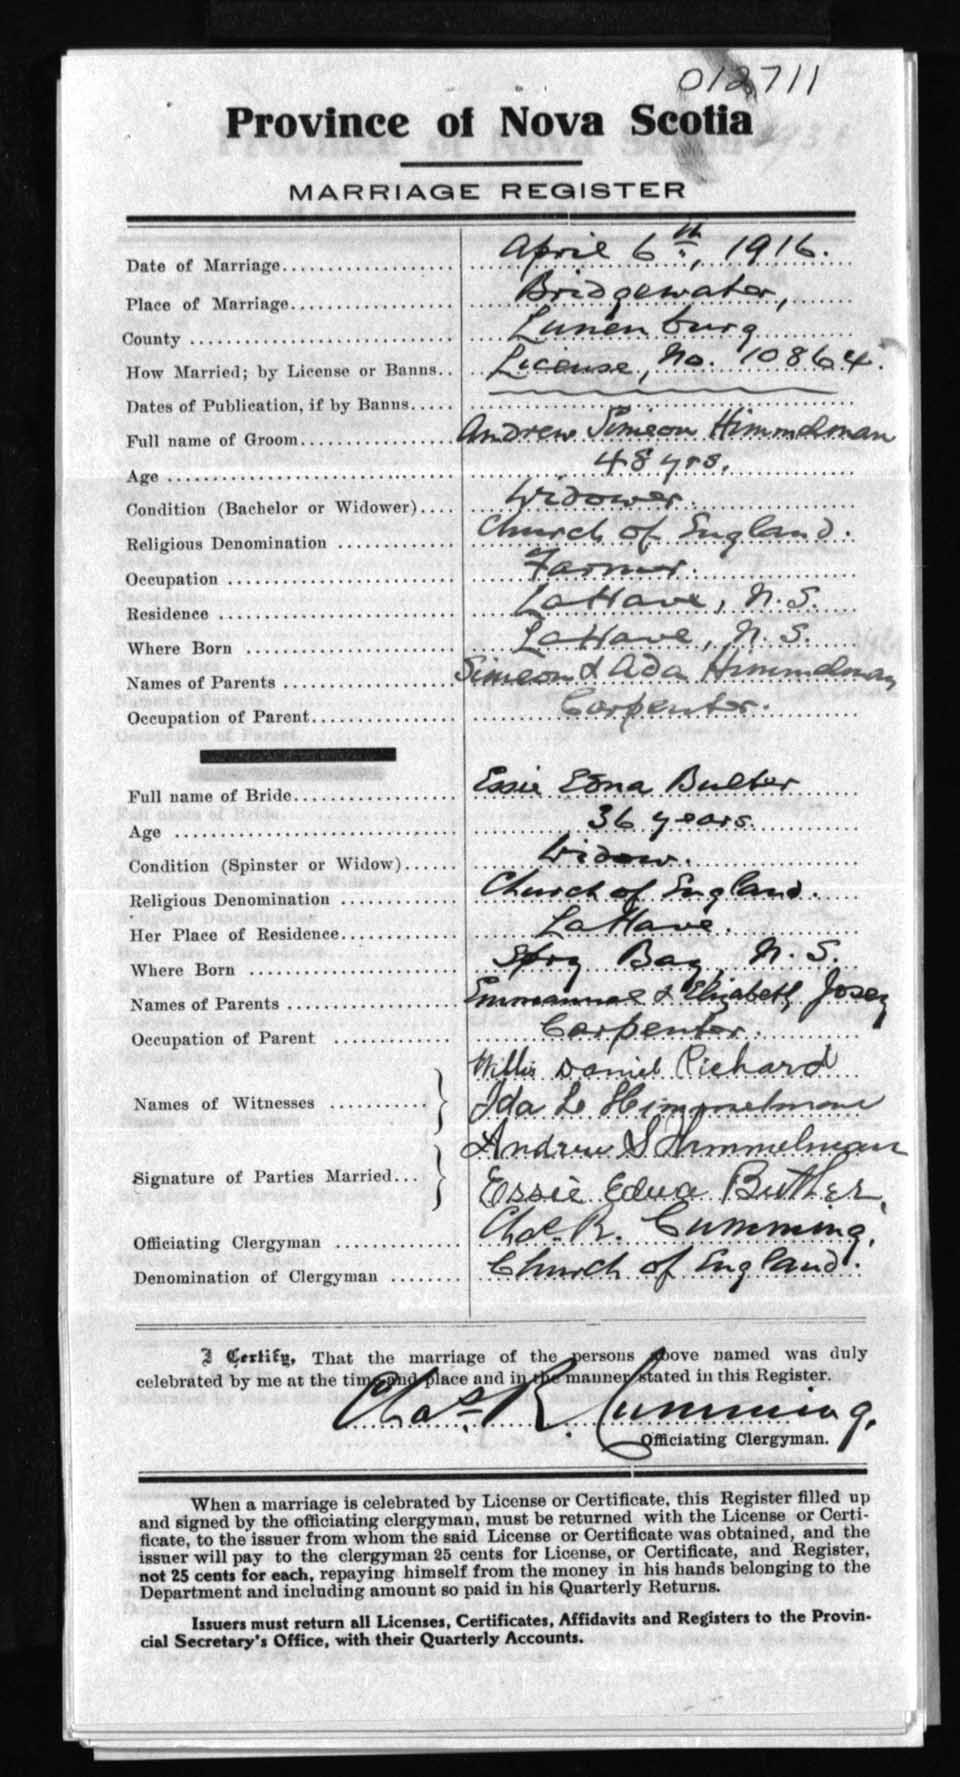 012711
Province of Nova Scotia
MARRIAGE REGISTER
Date of Marriage April 6th, 1916.
Place of Marriage Bridgewater,
County Lunenburg
How Married; by License or Banns License, No. 10864.
Dates of Publication, if by Banns
Full name of Groom Andrew Simeon Himmelman
Age 48 yrs.
Condition (Bachelor or Widower) Widower.
Religious Denomination Church of England.
Occupation Farmer.
Residence LaHave, N.S.
Where Born LaHave, N.S.
Names of Parents Simeon & Ada Himmelman
Occupation of Parent Carpenter.
Full name of Bride Essie Edna Butler
Age 36 years.
Condition (Spinster or Widow) Widow.
Religious Denomination Church of England.
Her Place of Residence LaHave.
Where Born Spry Bay, N.S.
Names of Parents & Elizabeth Josey
Occupation of Parent Carpenter.
Willis Daniel Pichard
Names of Witnesses Ida L Himmelman
Andrew S Himmelman
Signature of Parties Married... Essie Edna Butler,
Officiating Clergyman Chas. R. Cumming,
Denomination of Clergyman Church of England.
I Certify, That the marriage of the persons above named was duly
celebrated by me at the time and place and in the manner stated in this Register.
Chas. R. Cumming,
Officiating Clergyman.
When a marriage is celebrated by License or Certificate, this Register filled up
and signed by the officiating clergyman, must be returned with the License or Certi-
ficate, to the issuer from whom the said License or Certificate was obtained, and the
issuer will pay to the clergyman 25 cents for License, or Certificate, and Register,
not 25 cents for each, repaying himself from the money in his hands belonging to the
Department and including amount so paid in his Quarterly Returns.
Issuers must return all Licenses, Certificates, Affidavits and Registers to the Provin-
cial Secretary's Office, with their Quarterly Accounts.